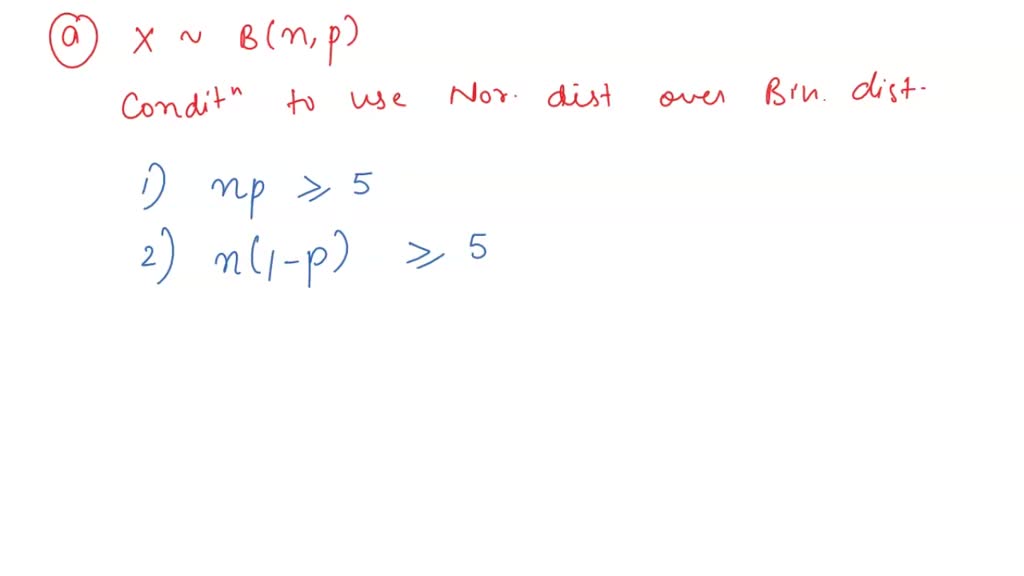 a X ~ B(n,p)
Conditⁿ to use Nor. dist over Bin. dist.
1) np ⩾ 5
2) n(1-p) ⩾ 5